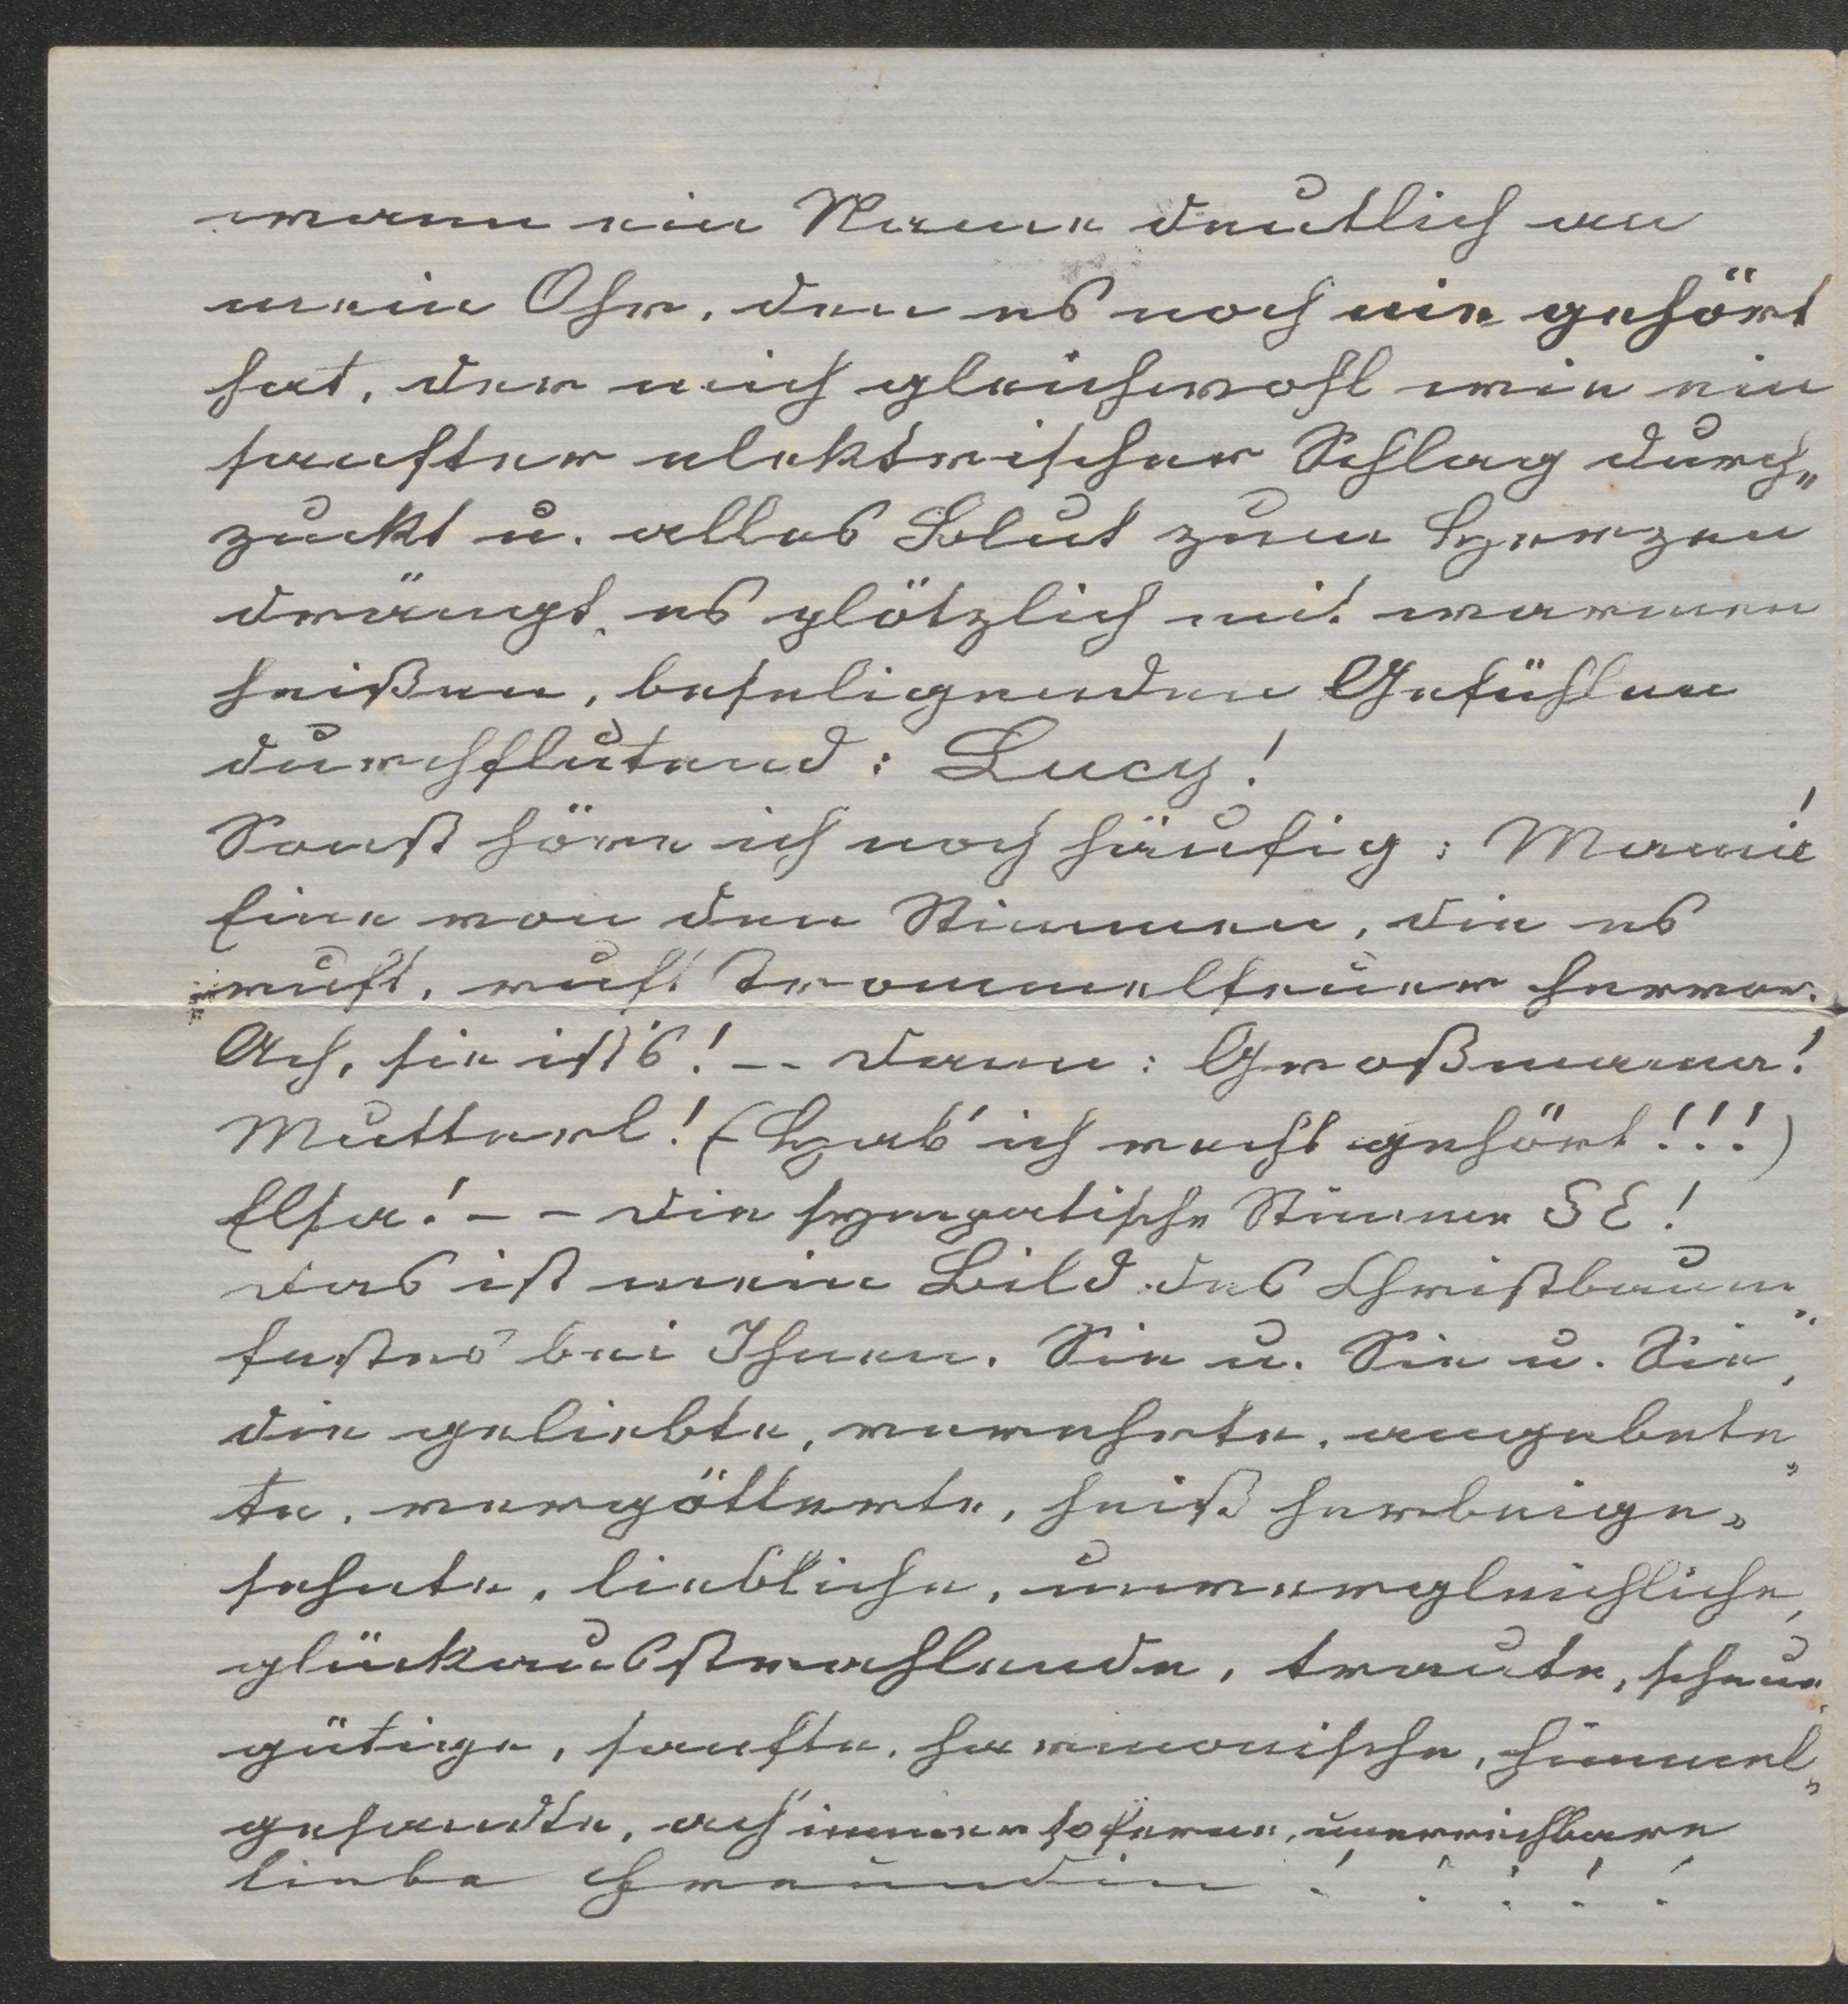 wann ein Name deutlich an
mein Ohr, den es noch nie gehört
hat, der mich gleichwohl wie ein
sanfter elektrischer Schlag durch„
zuckt u. alles Blut zum Herzen
drängt, es plötzlich mit warmen
heißen, beseligenden Gefühlen
durchflutend: Lucy!
Sonst höre ich noch häufig: Mamie!
Eine von den Stimmen, die es
ruft, ruft Trommelfeuer hervor.
Ach, sie ist's! -- dann: Großmama!
Mutterl! (Hab' ich recht gehört!!!)
Elsa! - - die sympatische Stimme SE!
das ist mein Bild des Christbaum„
festes bei Ihnen. Sie u. Sie u. Sie,
die geliebte, verehrte, angebete„
te, vergötterte, heiß herbeige„
sehnte, liebliche, unvergleichliche,
glückausstrahlende, traute, scheue
gütige, sanfte, harmonische, himmel„
gesandte, ach immer so ferne, unerreichbare
liebe Freundin ! ! ! ! !